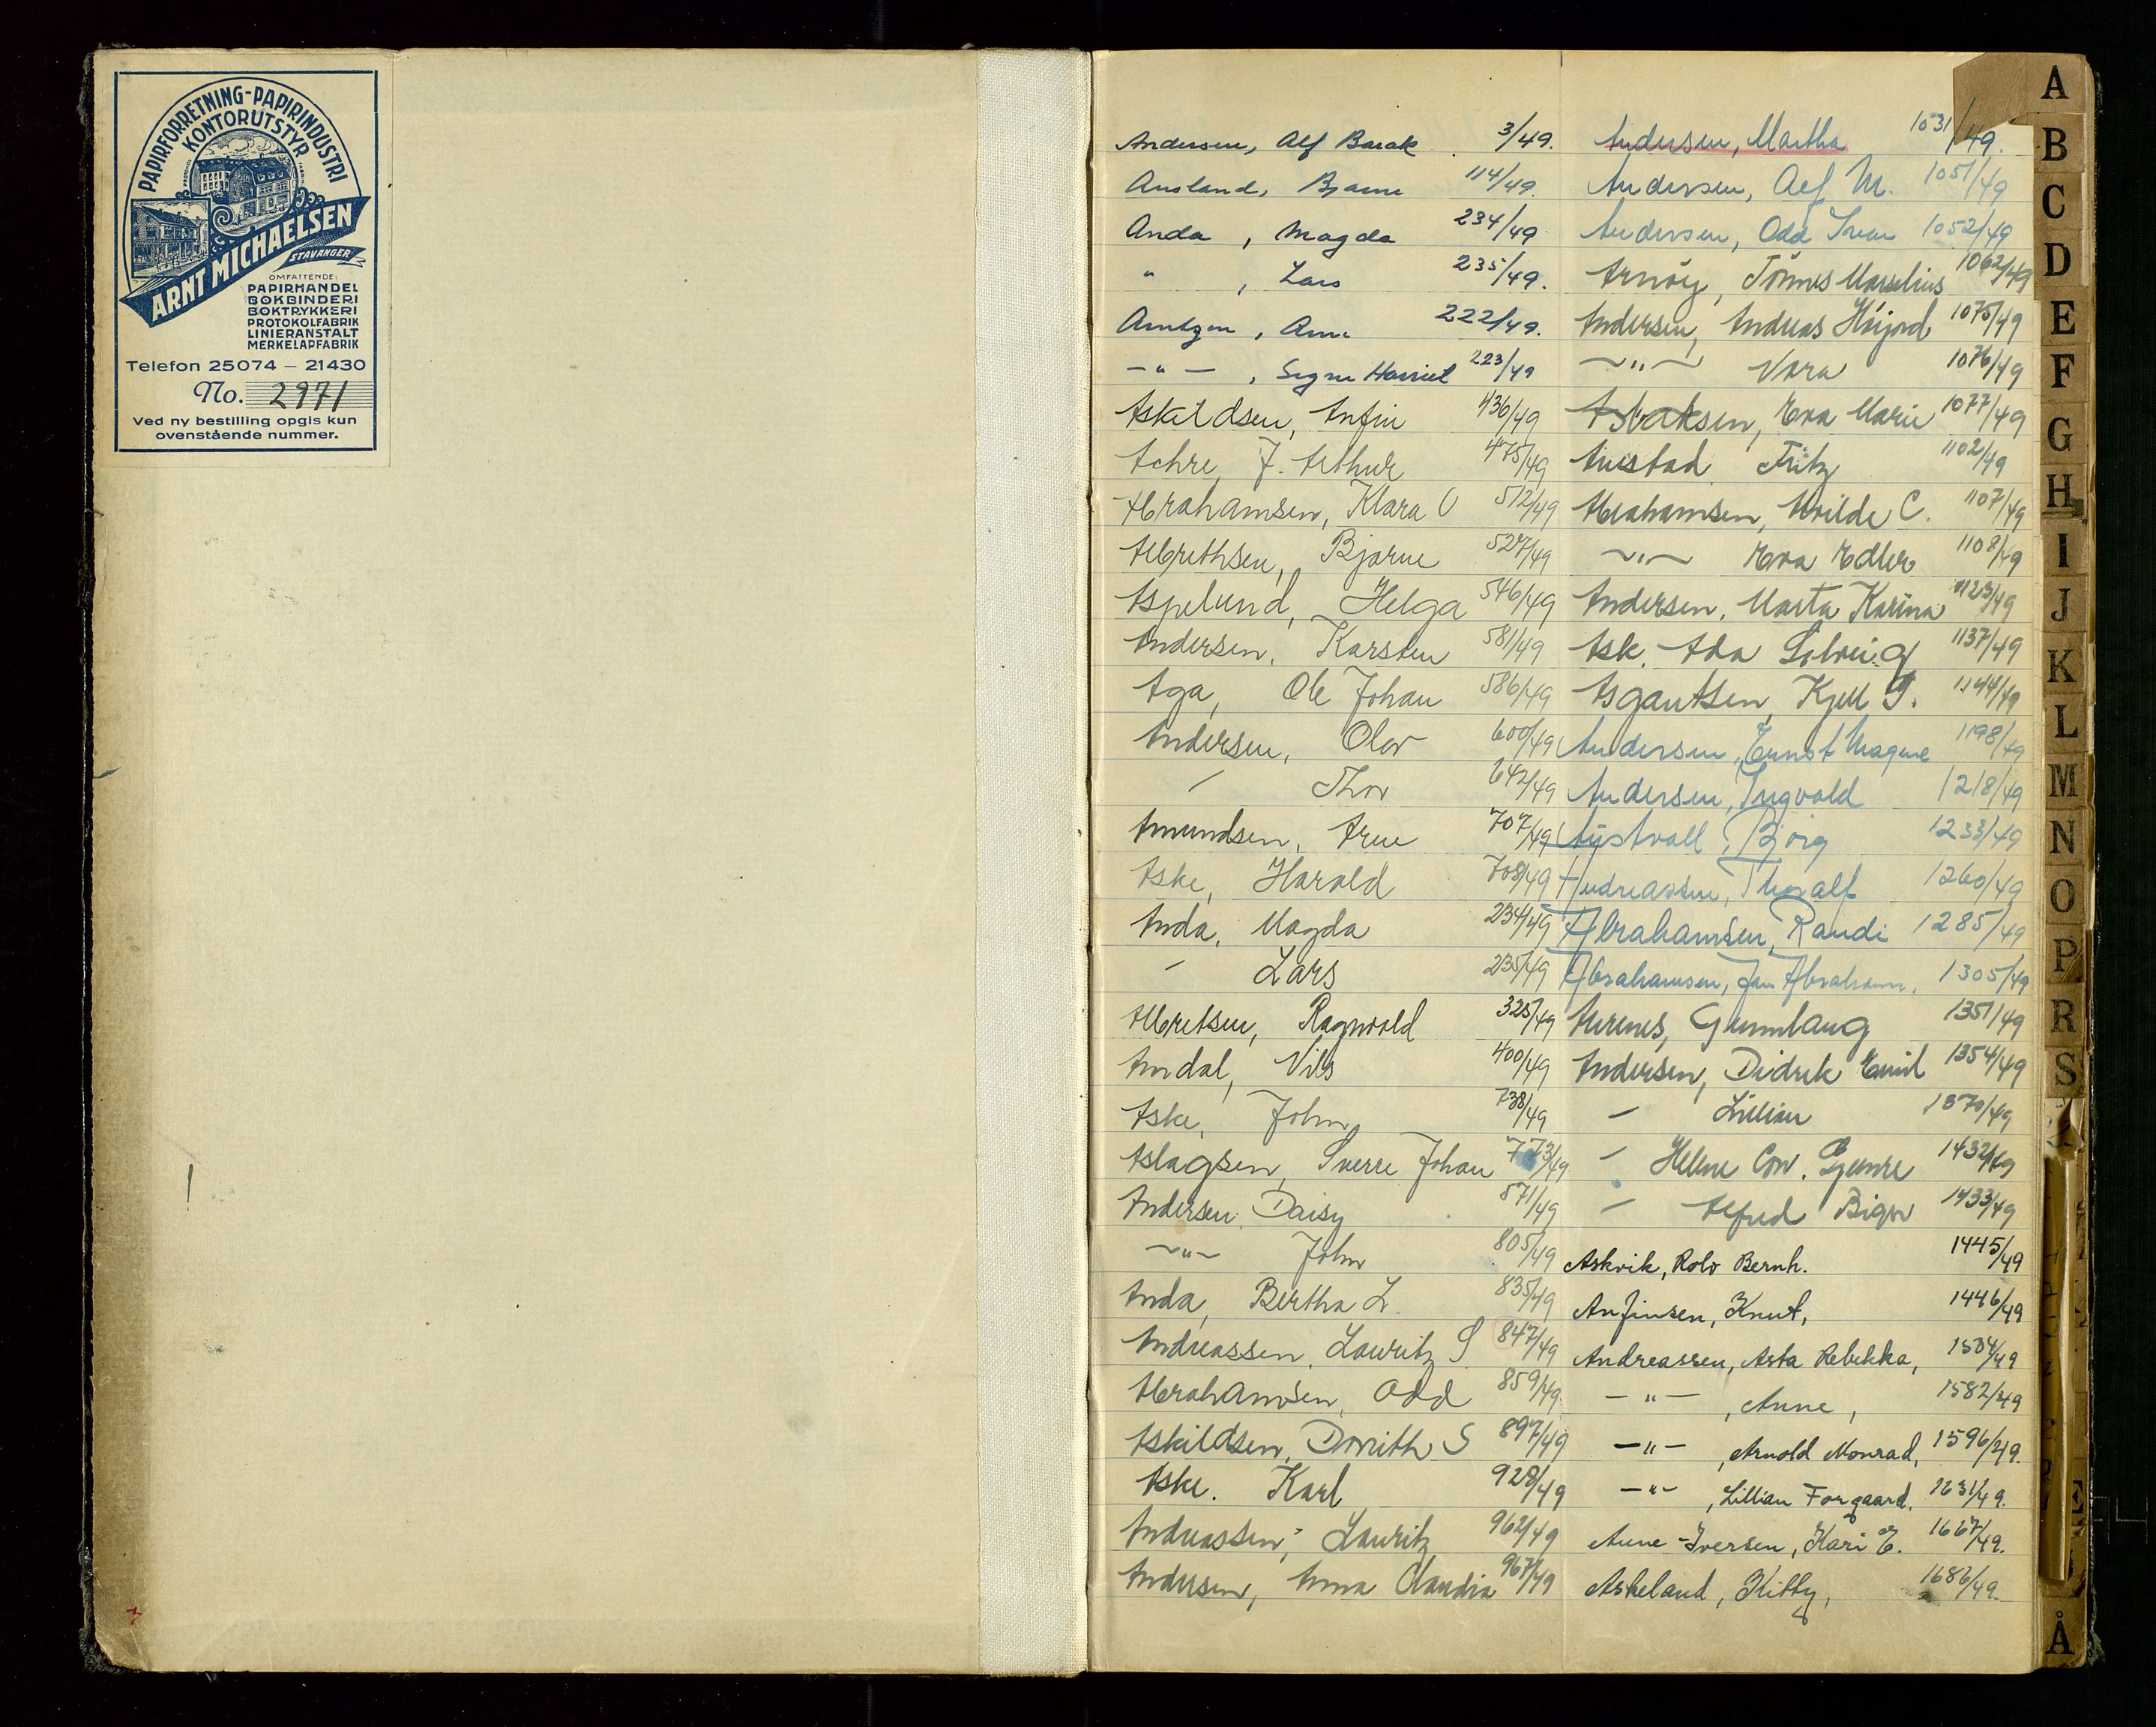 PAPIRFORRETNING-PAPIRINDUSTRI
KONTORUTSTYR
ARNT MICHAELSEN
STAVANGER
OMFATTENDE:
PAPIRHANDEL
BOKBINDERI
BOKTRYKKERI
PROTOKOLFABRIK
LINIERANSTALT
MERKELAPFABRIK
Telefon 25074 – 21430
No. 2971
Ved ny bestilling opgis kun
ovenstående nummer.
Andersen, Alf Barak 3/49.
Ausland, Bjarne 114/49.
Anda, Magda 234/49
" , Lars 235/49.
Arntzen, Arne 222/49.
-"- , Signe Harriet 223/49
Askildsen, Anfin 436/49
Achre, J. Arthur 475/49
Abrahamsen, Klara O 512/49
Albrethsen, Bjarne 527/49
Aspelund, Helga 546/49
Andersen, Karsten 581/49
Aga, Ole Johan 586/49
Andersen, Olav 600/49
- Thor 642/49
Amundsen, Arne 707/49
Aske, Harald 708/49
Anda, Magda 234/49
- Lars 235/49
Albretsen, Ragnvald 325/49
Amdal, Nils 400/49
Aske, John 738/49
Aslagsen, Sverre Johan 773/49
Andersen, Daisy 571/49
-"- John 805/49
Anda, Bertha L. 835/49
Andreassen, Lauritz S 847/49
Abrahamsen, Odd 859/49
Askildsen, Dorrith S 897/49
Aske. Karl 928/49
Andreassen, Lauritz 962/49
Andersen, Anna Claudia 967/49
Andersen, Martha 1031/49.
Andersen, Alf M. 1051/49
Andersen, Odd Ivar 1052/49
Arnøy, Tønnes Marselius 1062/49
Andersen, Andreas Höijord 1075/49
-"- Vera 1076/49
Aslaksen, Eva Marie 1077/49
Austad, Fritz 1102/49
Abrahamsen, C. 1107/49
-"- Eva 1108/49
Andersen, Marta Karina 1123/49
Ask, Ada Solveig 1137/49
Asgautsen, Kjell G. 1144/49
Andersen, Ernst Magne 1198/49
Andersen, Ingvald 1218/49
Austvoll, Bjørg 1233/49
Andreassen, Thoralf 1260/49
Abrahamsen, Randi 1285/49
Abrahamsen, Jan Abraham. 1305/49
Aarenes, Gunnlaug 1351/49
Andersen, Didrik Emil 1354/49
- Lillian 1370/49
- Helene Con. 1432/49
- Alfred Birger 1433/49
Askvik, Rolv Bernh. 1445/49
Anfinsen, Knut, 1446/49
Andreassen, Asta Rebekka, 1504/49
-"- , Anne, 1582/49
-"- , Arnold Monrad, 1596/49.
-"- , Lillian Torgaard, 1631/49.
Aune-Iversen, Kari E. 1667/49.
Askeland, Kitty, 1686/49.
A
B
C
D
E
F
G
H
I
J
K
L
M
N
O
P
R
S
E
Å